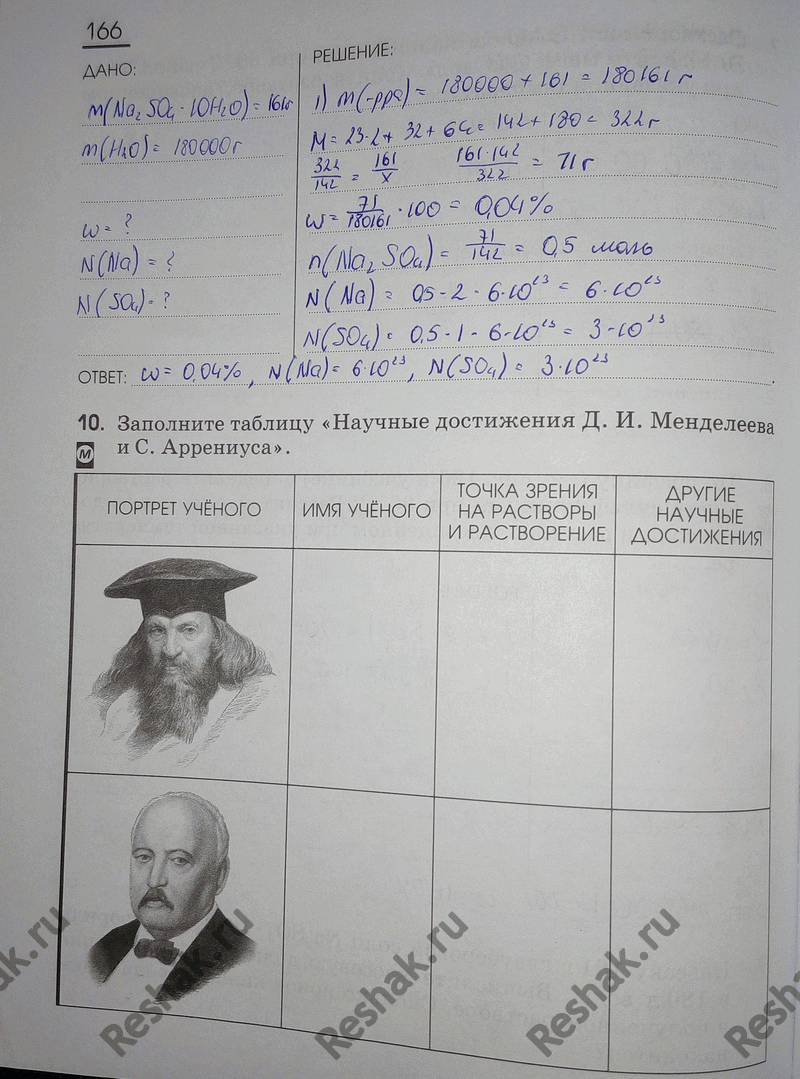 166
ДАНО:
m(Na₂SO₄·10H₂O) = 161г
m(H₂O) = 180000г
ω = ?
N(Na) = ?
N(SO₄) = ?
РЕШЕНИЕ:
1) m(-ppa) = 180000 + 161 = 180161 г
M = 23·2 + 32 + 64 = 142 + 180 = 322 г
322/142 = 161/x 161·142/322 = 71 г
ω = 71/180161 · 100 = 0,04%
n(Na₂SO₄) = 71/142 = 0,5 моль
N(Na) = 0,5 · 2 · 6·10²³ = 6·10²³
N(SO₄) = 0,5 · 1 · 6·10²³ = 3·10²³
ОТВЕТ: ω = 0,04%, N(Na) = 6·10²³, N(SO₄) = 3·10²³.
10. Заполните таблицу «Научные достижения Д. И. Менделеева
М и С. Аррениуса».
ПОРТРЕТ УЧЁНОГО
ИМЯ УЧЁНОГО
ТОЧКА ЗРЕНИЯ
НА РАСТВОРЫ
И РАСТВОРЕНИЕ
ДРУГИЕ
НАУЧНЫЕ
ДОСТИЖЕНИЯ
Reshak.ru
Reshak.ru
Reshak.ru
Reshak.ru